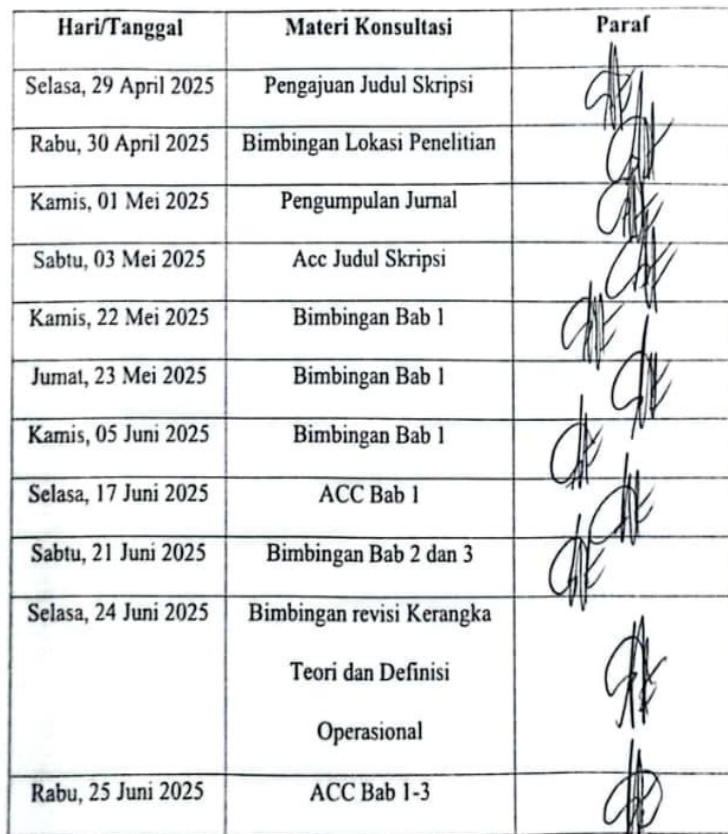 Hari/Tanggal Materi Konsultasi Paraf
Selasa, 29 April 2025 Pengajuan Judul Skripsi
Rabu, 30 April 2025 Bimbingan Lokasi Penelitian
Kamis, 01 Mei 2025 Pengumpulan Jurnal
Sabtu, 03 Mei 2025 Acc Judul Skripsi
Kamis, 22 Mei 2025 Bimbingan Bab 1
Jumat, 23 Mei 2025 Bimbingan Bab 1
Kamis, 05 Juni 2025 Bimbingan Bab 1
Selasa, 17 Juni 2025 ACC Bab 1
Sabtu, 21 Juni 2025 Bimbingan Bab 2 dan 3
Selasa, 24 Juni 2025 Bimbingan revisi Kerangka
Teori dan Definisi
Operasional
Rabu, 25 Juni 2025 ACC Bab 1-3